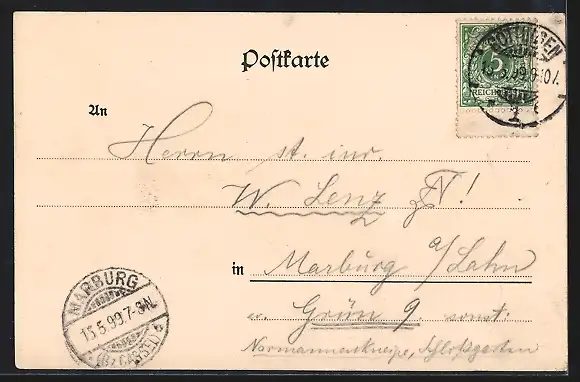 Postkarte
GÖTTINGEN
5
REICHSPOST
An
Herrn st. iur.
W. Lenz
in Marburg a/Lahn
Grün 9. sonst.
Normannenkneipe, Schloßgarten
MARBURG
15.5.99.7-8N.
(Bz. CASSEL)